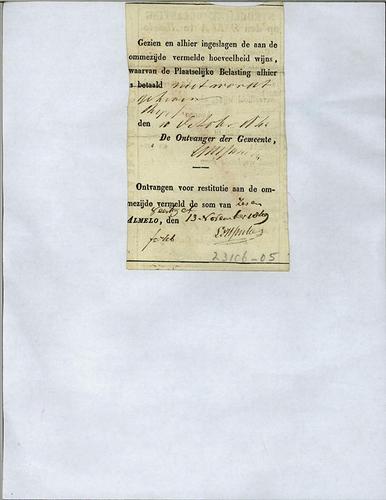 Gezien en alhier ingeslagen de aan de
ommezijde vermelde hoeveelheid wijns,
waarvan de Plaatselijke Belasting alhier
is betaald niet wordt
den 10 October
De Ontvanger der Gemeente,
Ontvangen voor restitutie aan de om-
mezijde vermeld de som van
ALMELO, den 13 November
23106-05